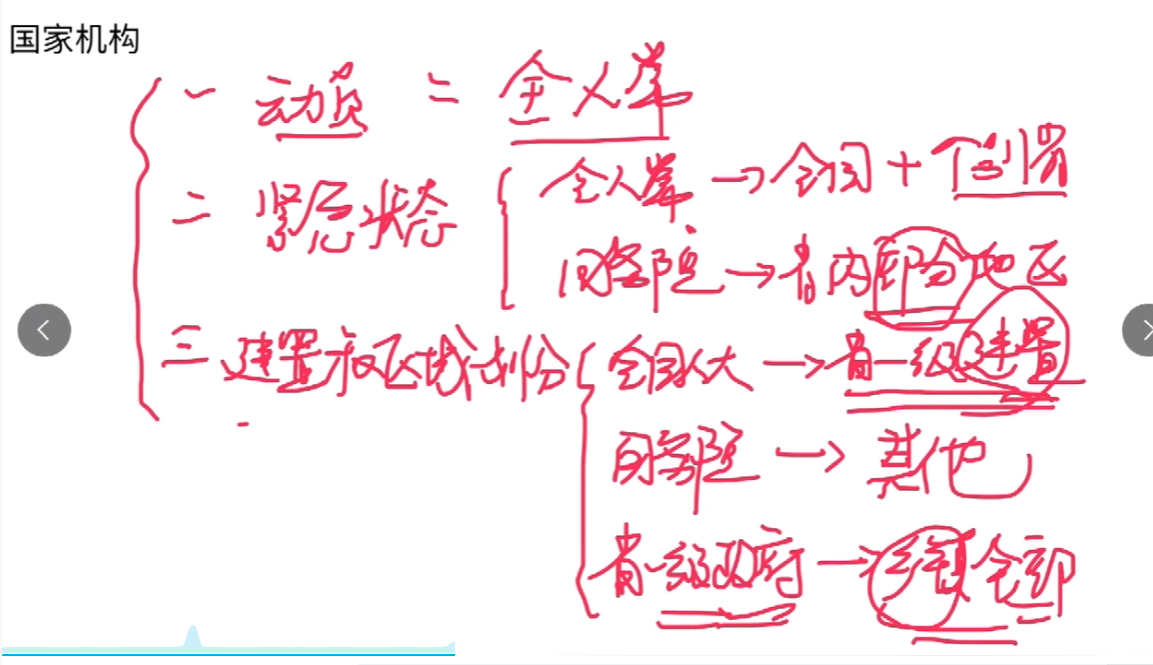 国家机构
一 动员 = 全人常
二 紧急状态
全人常 → 全国 + 个别省
国务院 → 省内部分地区
三 建置和区域划分
全国人大 → 省一级建置
国务院 → 其他
省一级政府 → 乡镇全部